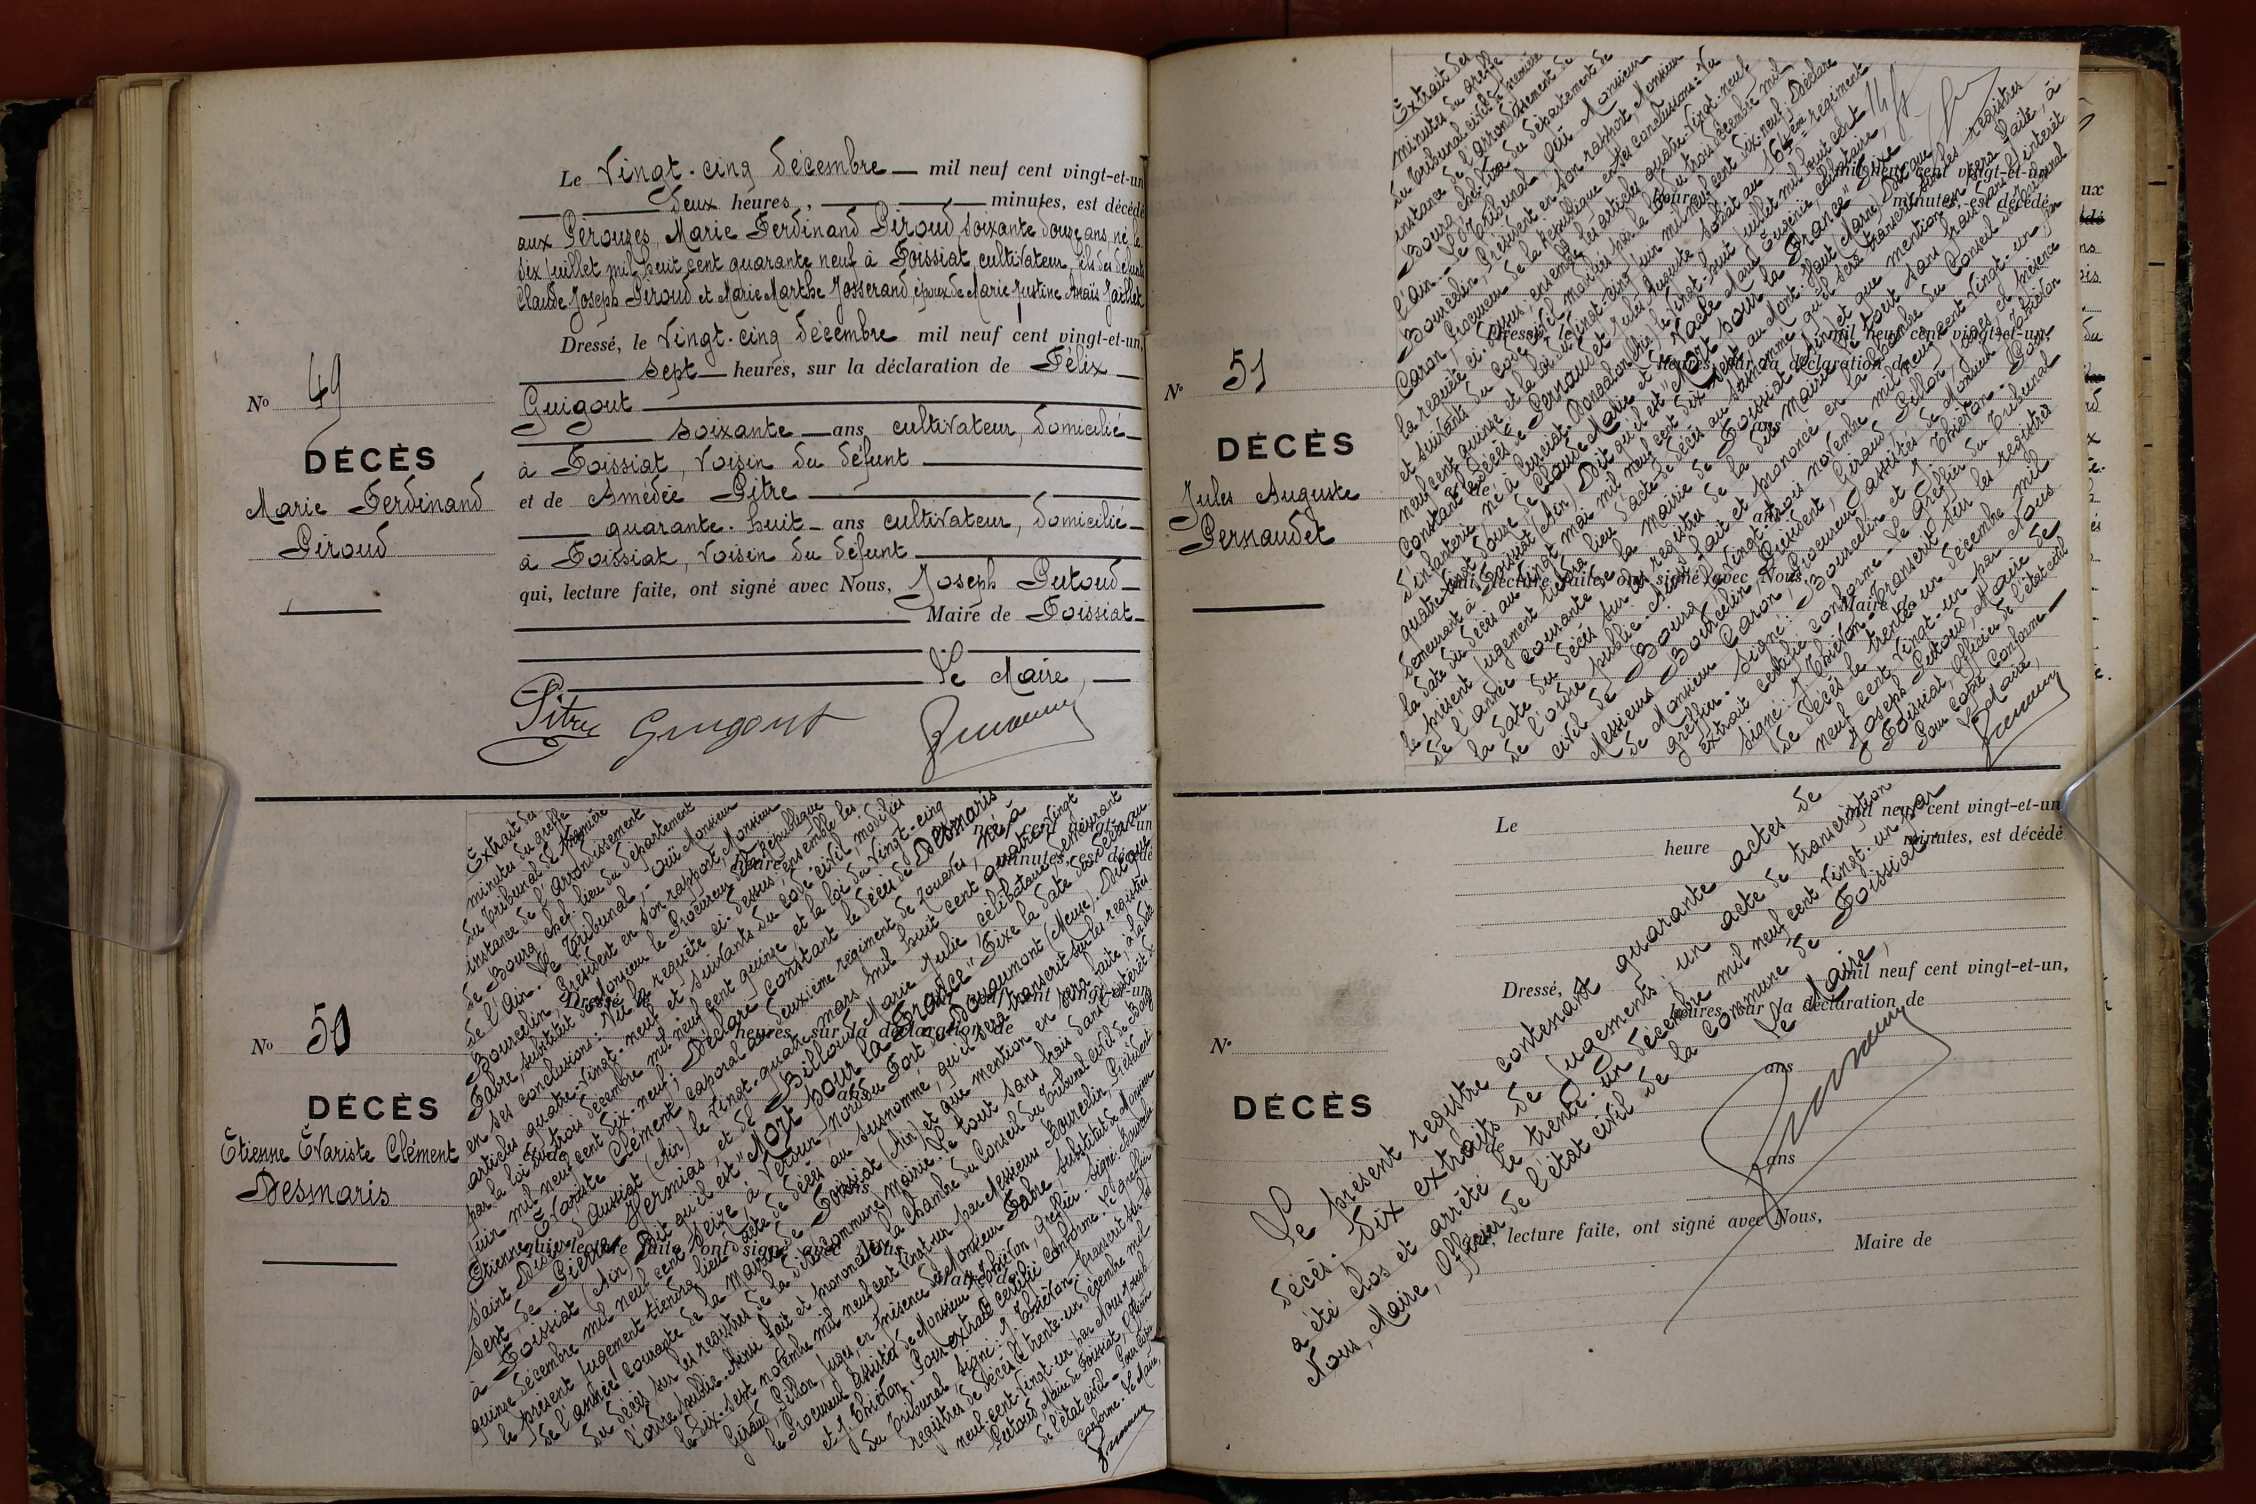 Le Vingt-cinq décembre mil neuf cent vingt-et-un
deux heures, minutes, est décédé
aux Pérouses, Marie Ferdinand Piroud soixante douze ans, né le
dix juillet mil huit cent quarante neuf à Foissiat, cultivateur, fils des défunts
Claude Joseph Piroud et Marie Marthe Josserand, époux de Marie Justine Anaïs Jaillet
Dressé, le Vingt-cinq décembre mil neuf cent vingt-et-un,
sept heures, sur la déclaration de Félix
Guigout
soixante ans, cultivateur, domicilié
à Foissiat, voisin du défunt
et de Amédée Pitre
quarante-huit ans cultivateur, domicilié
à Foissiat, voisin du défunt
qui, lecture faite, ont signé avec Nous, Joseph Putoud
Maire de Foissiat
Le Maire,
Pitre Guigout
No 49
DÉCÈS
Marie Ferdinand
Piroud
No 50
DÉCÈS
Etienne Evariste Clément
Desmaris
Extrait des
minutes du greffe
du Tribunal de première
instance de l'arrondissement
de Bourg chef-lieu du département
de l'Ain. Le Tribunal, - ouï Monsieur
Bourcelin, Président en son rapport, Monsieur
Fabre, substitut de Monsieur le Procureur de la République
en ses conclusions: Vu la requête ci-dessus, ensemble les
articles quatre-vingt-neuf et suivants du code civil, modifiés
par la loi du trois décembre mil neuf cent quinze et la loi du vingt-cinq
juin mil neuf cent dix-neuf; Déclare constant le décès de Desmaris
Etienne Evariste Clément caporal au deuxième régiment de zouaves, né à
Saint Didier d'Aussiat (Ain) le vingt-quatre mars mil huit cent quatre-vingt
sept, de Pierre Hermias et de Billoud Marie Julie, célibataire demeurant
à Foissiat (Ain) Dit qu'il est "Mort pour la France" Fixe la date du décès au
quinze décembre mil neuf cent seize à Verdun, nord du Fort de Douaumont (Meuse). Dit que
le présent jugement tiendra lieu d'acte de décès au susnommé, qu'il sera transcrit sur les registres
de l'année courante de la mairie de Foissiat (Ain) et que mention en sera faite, à la date
du décès sur les registres de la dite commune, mairie. Le tout sans frais dans l'intérêt de
l'ordre public. Ainsi fait et prononcé en la Chambre du Conseil du Tribunal civil de Bourg
le dix-sept novembre mil neuf cent vingt-un par Messieurs Bourcelin, Président
Giraud, Gillon, juges, en présence de Monsieur Fabre, substitut de Monsieur
le Procureur assistés de Monsieur Thiévon, greffier. Signé: Bourcelin
et J. Thiévon. Pour extrait certifié conforme. Le greffier
du Tribunal, signé: J. Thiévon. Transcrit sur les
registres de décès le trente-un décembre mil
neuf cent vingt-un par Nous Joseph
Putoud, Maire de Foissiat, officier
de l'état civil. Pour copie
conforme. Le Maire,
No 51
DÉCÈS
Jules Auguste
Pernaudet
Extrait des
minutes du greffe
du Tribunal civil de première
instance de l'arrondissement de
Bourg chef-lieu du département de
l'Ain. Le Tribunal, Ouï Monsieur
Bourcelin, Président en son rapport, Monsieur
Caron Procureur de la République en ses conclusions: Vu
la requête ci-dessus ensemble les articles quatre-vingt-neuf
et suivants du code civil modifiés par la loi du trois décembre mil
neuf cent quinze et la loi du vingt-cinq juin mil neuf cent dix-neuf; Déclare
constant le décès de Pernaudet Jules Auguste soldat au 164ème régiment
d'infanterie né à le vingt-huit juillet mil huit cent
quatre-vingt-douze de Claude Marie et de Vacle Marie Eugénie célibataire,
demeurant à Foissiat (Ain) Dit qu'il est "Mort pour la France" Fixe
la date du décès au vingt mai mil neuf cent dix-sept au Mont-Haut (Marne) Dit que
le présent jugement tiendra lieu d'acte de décès au susnommé qu'il sera transcrit sur les registres
de l'année courante de la mairie de Foissiat (Ain) et que mention en sera faite, à
la date du décès sur les registres de la dite mairie. Le tout sans frais dans l'intérêt
de l'ordre public. Ainsi fait et prononcé en la Chambre du Conseil du Tribunal
civil de Bourg le vingt-trois novembre mil neuf cent vingt-un, par
Messieurs Bourcelin, Président, Giraud, Gillon, juges, en présence
de Monsieur Caron, Procureur, assistés de Monsieur Thiévon
greffier. Signé: Bourcelin et J. Thiévon. Pour
extrait certifié conforme. Le greffier du Tribunal
signé: J. Thiévon. Transcrit sur les registres
de décès le trente-un décembre mil
neuf cent vingt-un par Nous
Joseph Putoud, Maire de
Foissiat, officier de l'état civil
Pour copie conforme
Le Maire,
Le heure mil neuf cent vingt-et-un
minutes, est décédé
Dressé, mil neuf cent vingt-et-un,
heures, sur la déclaration de
ans
ans
lecture faite, ont signé avec Nous,
Maire de
No
DÉCÈS
Le présent registre contenant quarante actes de
décès. Dix extraits de jugements, un acte de transcription
a été clos et arrêté le trente-un décembre mil neuf cent vingt-un par
Nous, Maire, officier de l'état civil de la commune de Foissiat.
Le Maire,